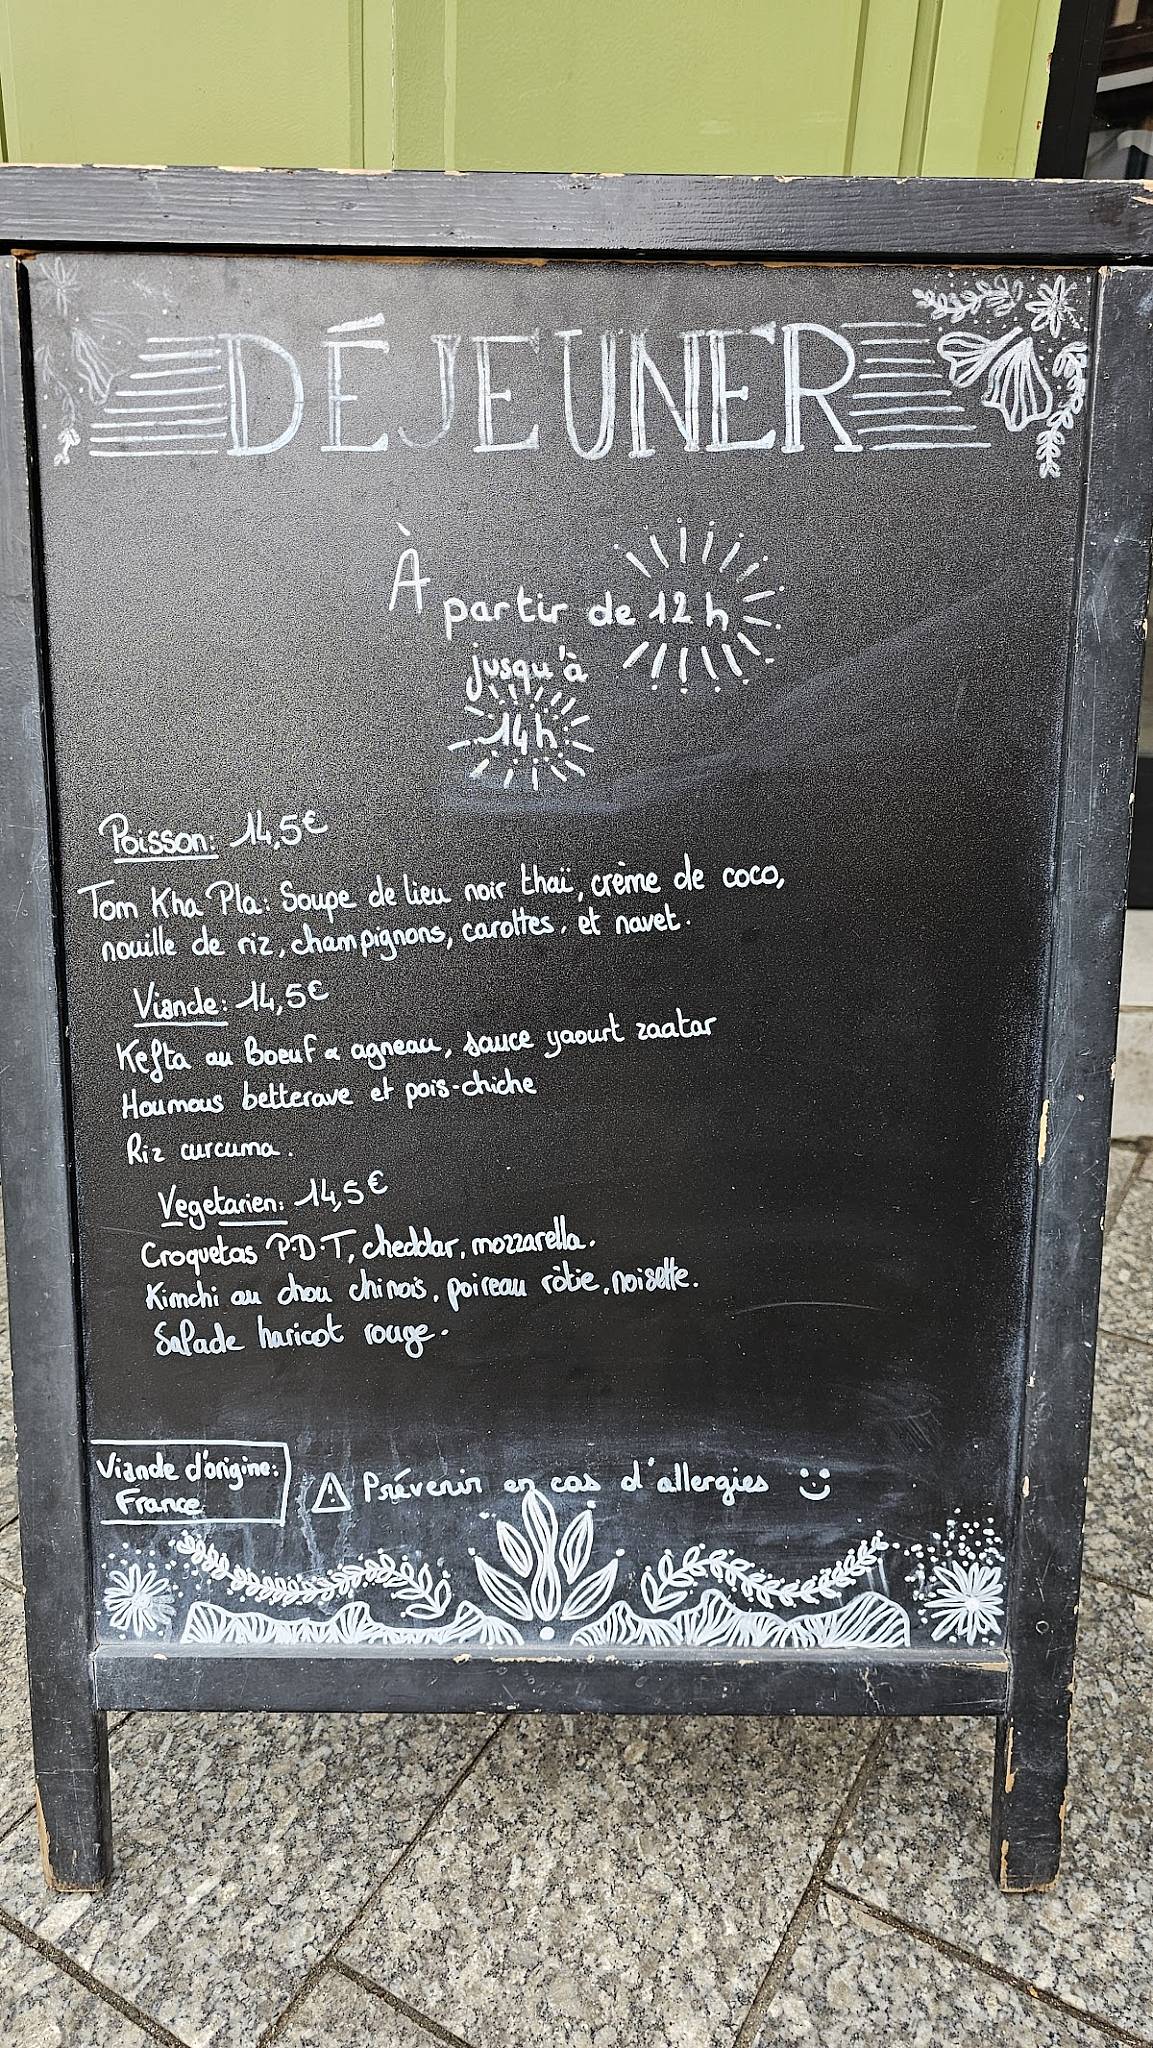 DÉJEUNER
À partir de 12h
jusqu'à
14h
Poisson: 14,5€
Tom Kha Pla: Soupe de lieu noir thaï, crème de coco,
nouille de riz, champignons, carottes, et navet.
Viande: 14,5€
Kefta au Boeuf & agneau, sauce yaourt zaatar
Houmous betterave et pois-chiche
Riz curcuma.
Vegetarien: 14,5€
Croquetas P.D.T, cheddar, mozzarella.
Kimchi au chou chinois, poireau rôtie, noisette.
Salade haricot rouge.
Viande d'origine:
France
⚠ Prévenir en cas d'allergies